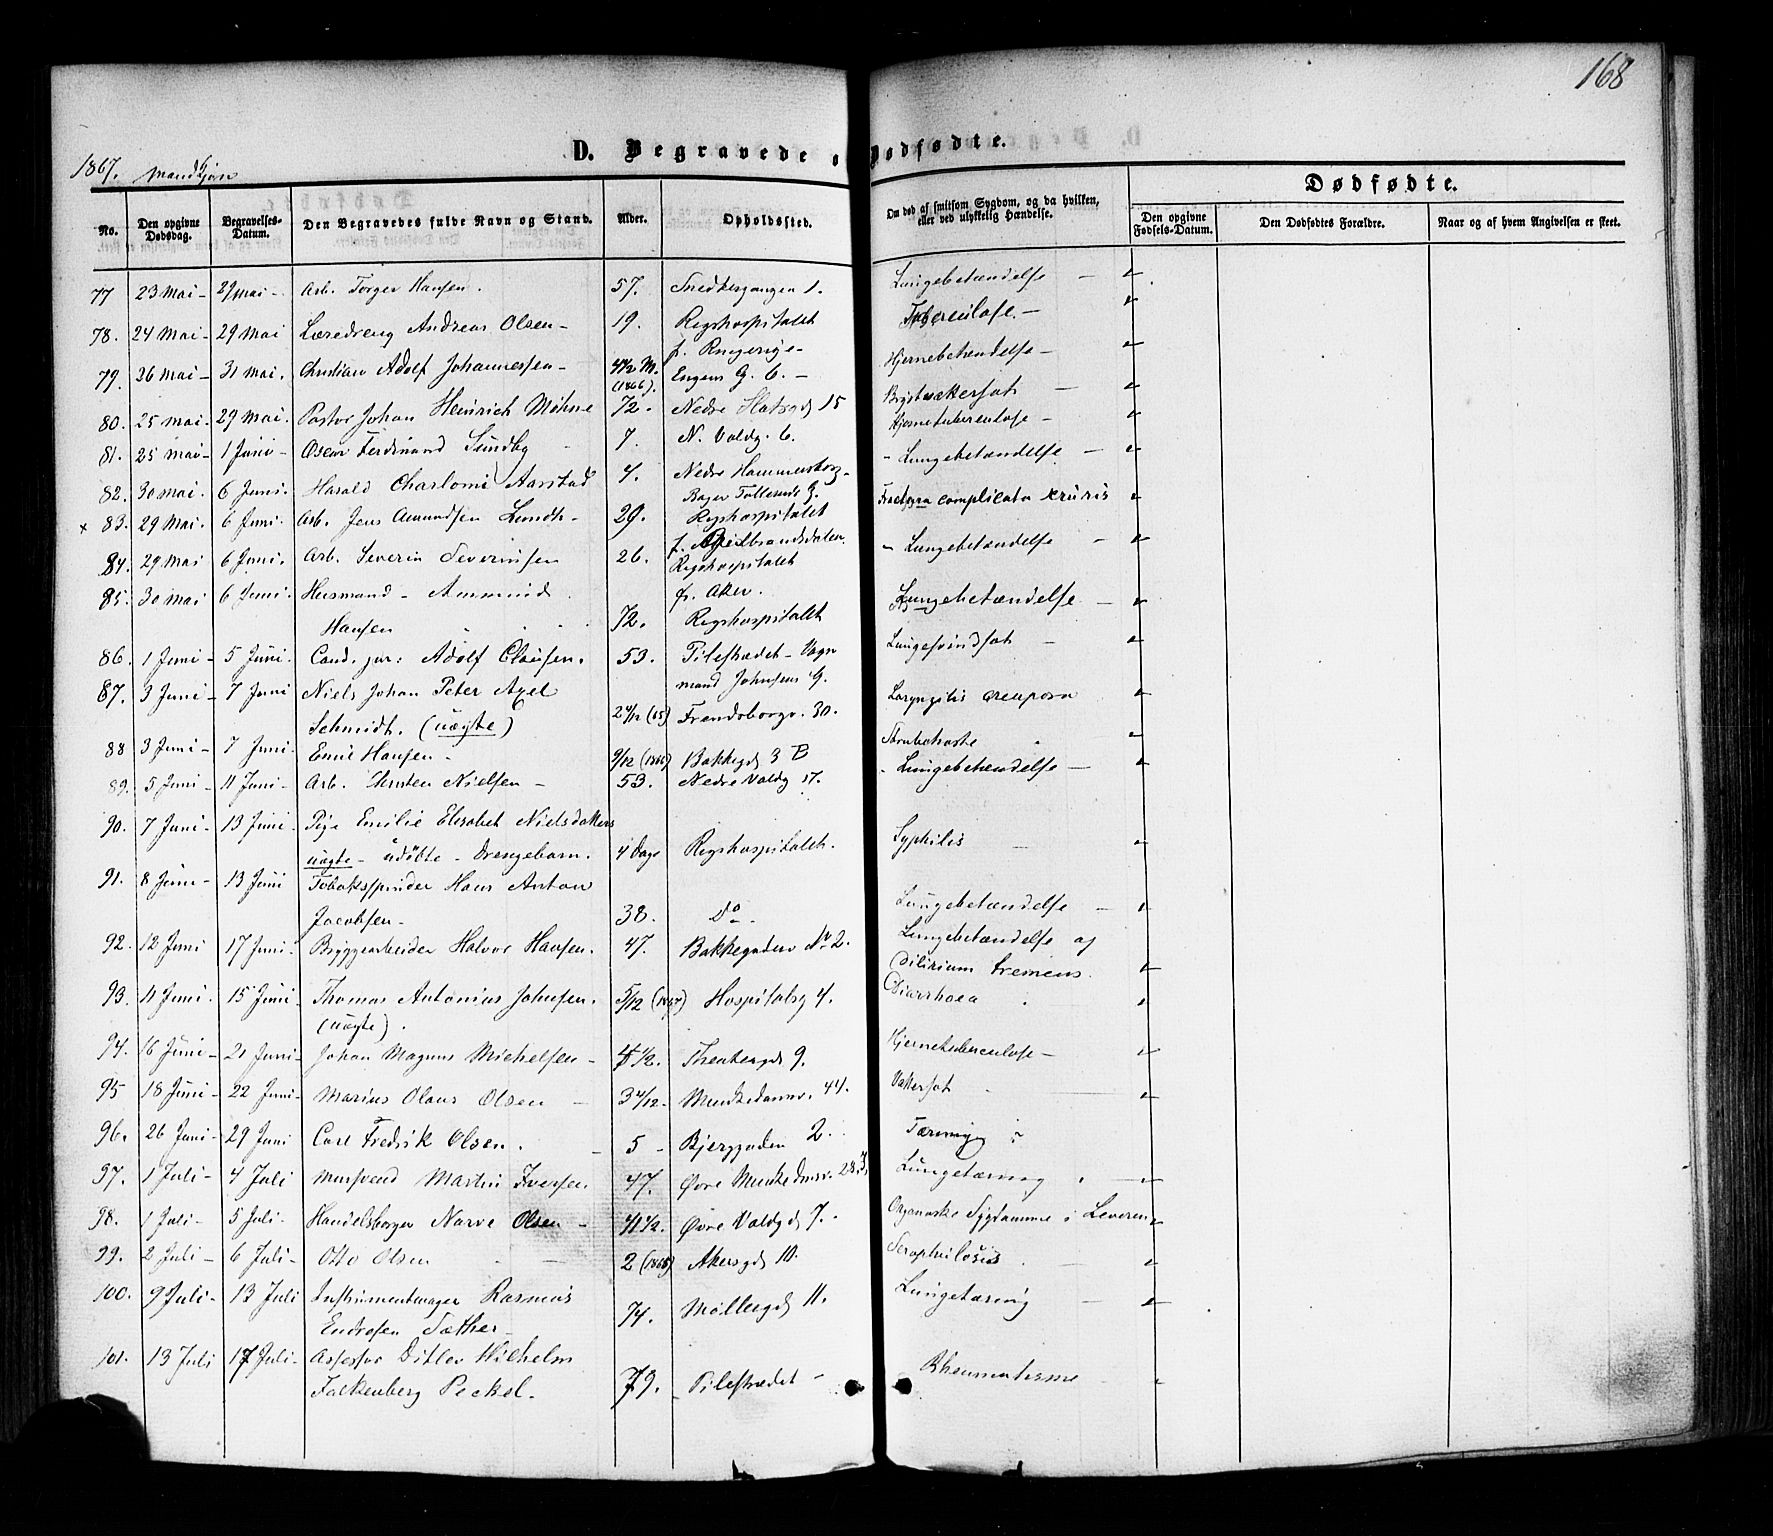 168
D. Begravede o Dødfødte.
1867. Mandkjøn
No. | Den opgivne Dødsdag. | Begravelses-Datum. | Den Begravedes fulde Navn og Stand. | Alder. | Opholdssted. | Om død af smitsom Sygdom, og da hvilken, eller ved ulykkelig Hændelse. | Dødfødte.
Den opgivne Fødsels-Datum. | Den Dødfødtes Forældre. | Naar og af hvem Angivelsen er skeet.
77 | 23 Mai - | 29 Mai - | Arb. Torger Hansen. | 57. | Snedkergangen 1. | Lungebetændelse -
78. | 24 Mai - | 29 Mai | Læredreng Andreas Olsen - | 19. | Rigshospitalet | Tuberculose -
f. Ringerige -
79. | 26 Mai - | 31 Mai. | Christian Adolf Johannessen - | 4 1/2 M. (1866). | Engens G. 6. - | Hjernebetændelse -
80. | 25 Mai - | 29 Mai. | Pastor Johan Heinrich Möhne | 72. | Nedre Slotsgd 15 | Brystvatersot -
81. | 25 Mai - | 1 Juni - | Oscar Ferdinand Sundby - | 7. | N. Voldg. 6. | Hjernetuberculose -
82. | 30 Mai. | 6 Juni. | Harald Charlomi Aarstad | 4. | Nedre Hammersborg - | - Lungebetændelse -
Bager Tollefsens G.
x 83. | 29 Mai. | 6 Juni. | Arb. Jens Amundsen Lundh - | 29. | Rigshospitalet | Fractura complicata cruris
f. Gudbrandsdalen.
84. | 29 Mai | 6 Juni. | Arb. Severin Severinsen | 26. | Rigshospitalet | - Lungebetændelse -
f. Aker.
85. | 30 Mai | 6 Juni. | Husmand - Ammund | Lungebetændelse -
Hansen | 72. | Rigshospitalet
86. | 1 Juni - | 5 Juni. | Cand. jur: Adolf Clausen. | 53. | Pilestrædet - Vogn | Lungesvindsot -
mand Johnsens G.
87. | 3 Juni - | 7 Juni | Niels Johan Peter Axel | Laryngitis crouposa
Schmidt. (uægte) | 2 4/12 (65) | Frendsborgv. 30.
88 | 3 Juni - | 7 Juni. | Emil Hansen - | 9/12 (1866) | Bakkegd 3 B | Strubehoste
89. | 5 Juni - | 11 Juni - | Arb. Thrsten Nielsen - | 53. | Nedre Voldg 17. | - Lungebetændelse -
90. | 7 Juni - | 13 Juni - | Pige Emilie Elisabet Nielsdatters
uægte - udöbte - Drengebarn. | 4 Dage | Rigshospitalet. | Syphilis
91. | 8 Juni - | 13 Juni | Tobaksspinder Hans Anton
Jacobsen - | 38. | Do - | Lungebetændelse -
92. | 12 Juni | 17 Juni. | Bryggearbeider Halvor Hansen. | 47. | Bakkegaden No 2. | Lungebetændelse og
Dilirium tremens.
93. | 11 Juni. | 15 Juni | Thomas Antonius Johnsen. | 5/12 (1867) | Hospitalsg 4. | Diarrhoea
(uægte).
94. | 16 Juni - | 21 Juni - | Johan Magnus Michelsen - | 4 1/2. | Theatergd 9. | Hjernetuberculose -
95 | 18 Juni - | 22 Juni - | Marius Olaus Olsen - | 3 4/12. | Munkedamsv. 44. | Vattersot
96. | 26 Juni - | 29 Juni | Carl Fredrik Olsen. | 5 - | Bjerggaden 2. | Tæring
97. | 1 Juli - | 4 Juli | Mursvend Martin Iversen | 47. | Øvre Munkedmsv. 28. | Lungetæring
98. | 1 Juli - | 5 Juli - | Handelsborger Narve Olsen - | 41 1/2. | Øvre Voldgd 7. - | Organiske Sygdomme i Leveren
99. | 2 Juli - | 6 Juli - | Otto Olsen - | 2 (1865) | Akersgd 10. | Scrophulosis
100. | 9 Juli - | 13 Juli | Instrumentmager Rasmus | Lungetæring
Endresen Sæther - | 74. | Møllergd 11.
101. | 13 Juli | 17 Juli - | Assessor Ditlev Wilhelm | Rheumatisme
Falkenberg Peckel. | 79. | Pilestrædet -